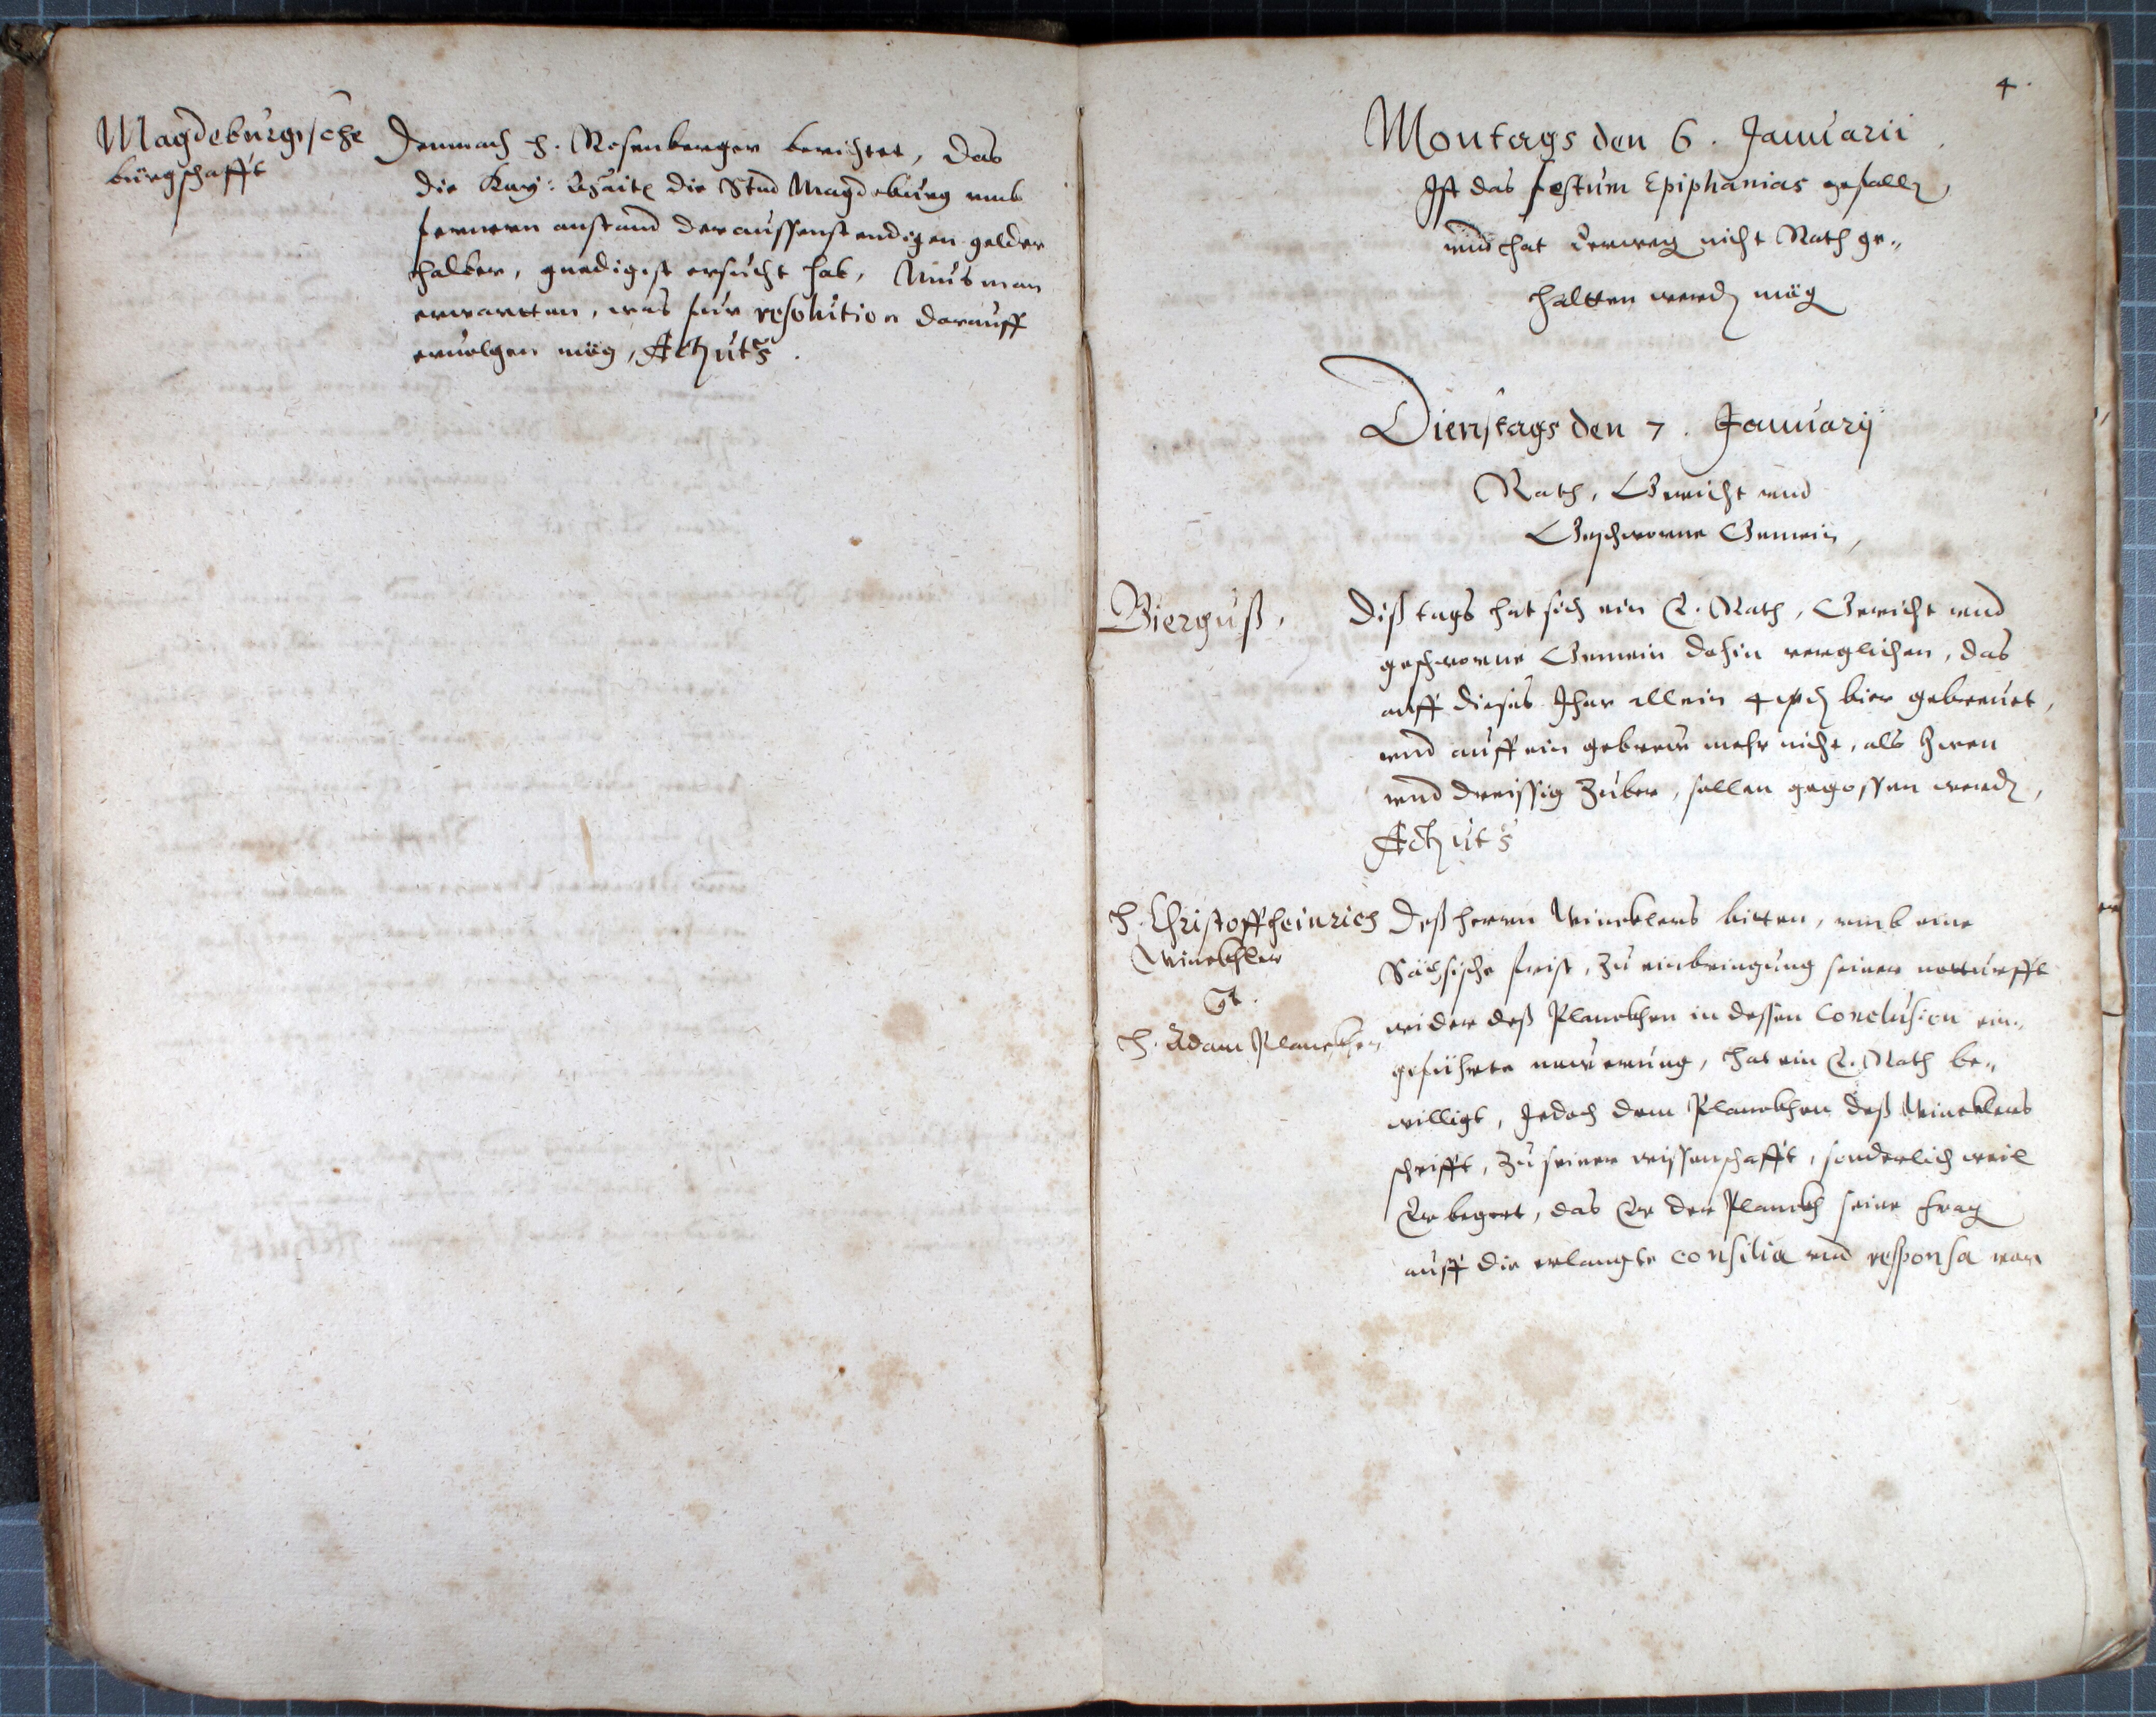 Magdeburgische
bürgschafft
Demnach H. Rosenberger berichtet, das
die Kay: die Stad Magdeburg umb
fernern anstand der aussenstendigen gelder
halber, gnedigist ersucht hab, Mus man
erwartten, was für resolution darauff
ervolgen mög, Act: ut s.
4.
Montags den 6. Januarii
Ist das festum Epiphanias gefalln,
und hat derweg nicht Rath ge„
haltten werdn mög
Dienstags den 7. Januarij
Rath, Gericht und
Geschworne Gemein,
Bierguß.
Diß tags hat sich ein E. Rath, Gericht und
geschworne Gemein dahin verglichen, das
auff dieses Jhar allein bier gebreuet,
und auff ein gebreu mehr nicht, als zwen
und dreissig Zuber, sollen gegossen werdn,
Act: ut s
H. Christoff Heinrich
Winckhler
H. Adam Planckhen
Deß herrn Wincklers bitten, umb eine
Sächsische frist, zu einbringung seiner notturfft
wider deß Planckhen in dessen Conclusion ein„
geführte neuerung, hat ein E. Rath be„
willigt, Jedoch dem Planckhen deß Wincklers
schrifft, zu seiner wissenschafft, sonderlich weil
Er begert, das Er der Planckh seine frag
auff die erlangte consilia und responsa